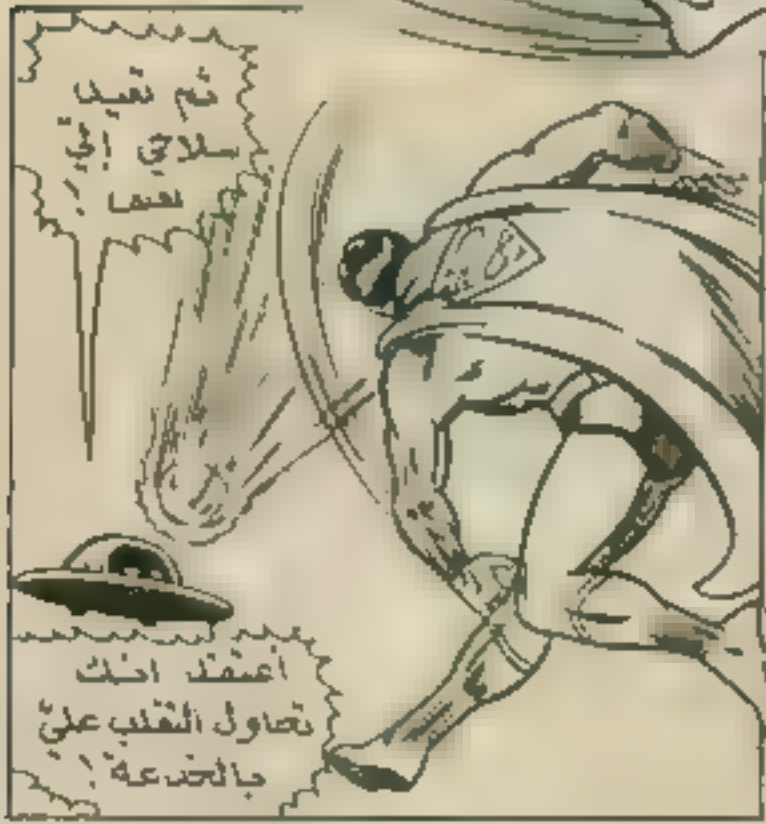 ثم نعيد
سلاحي إليّ
أعتقد انك
تحاول التغلب عليّ
بالخدعة !